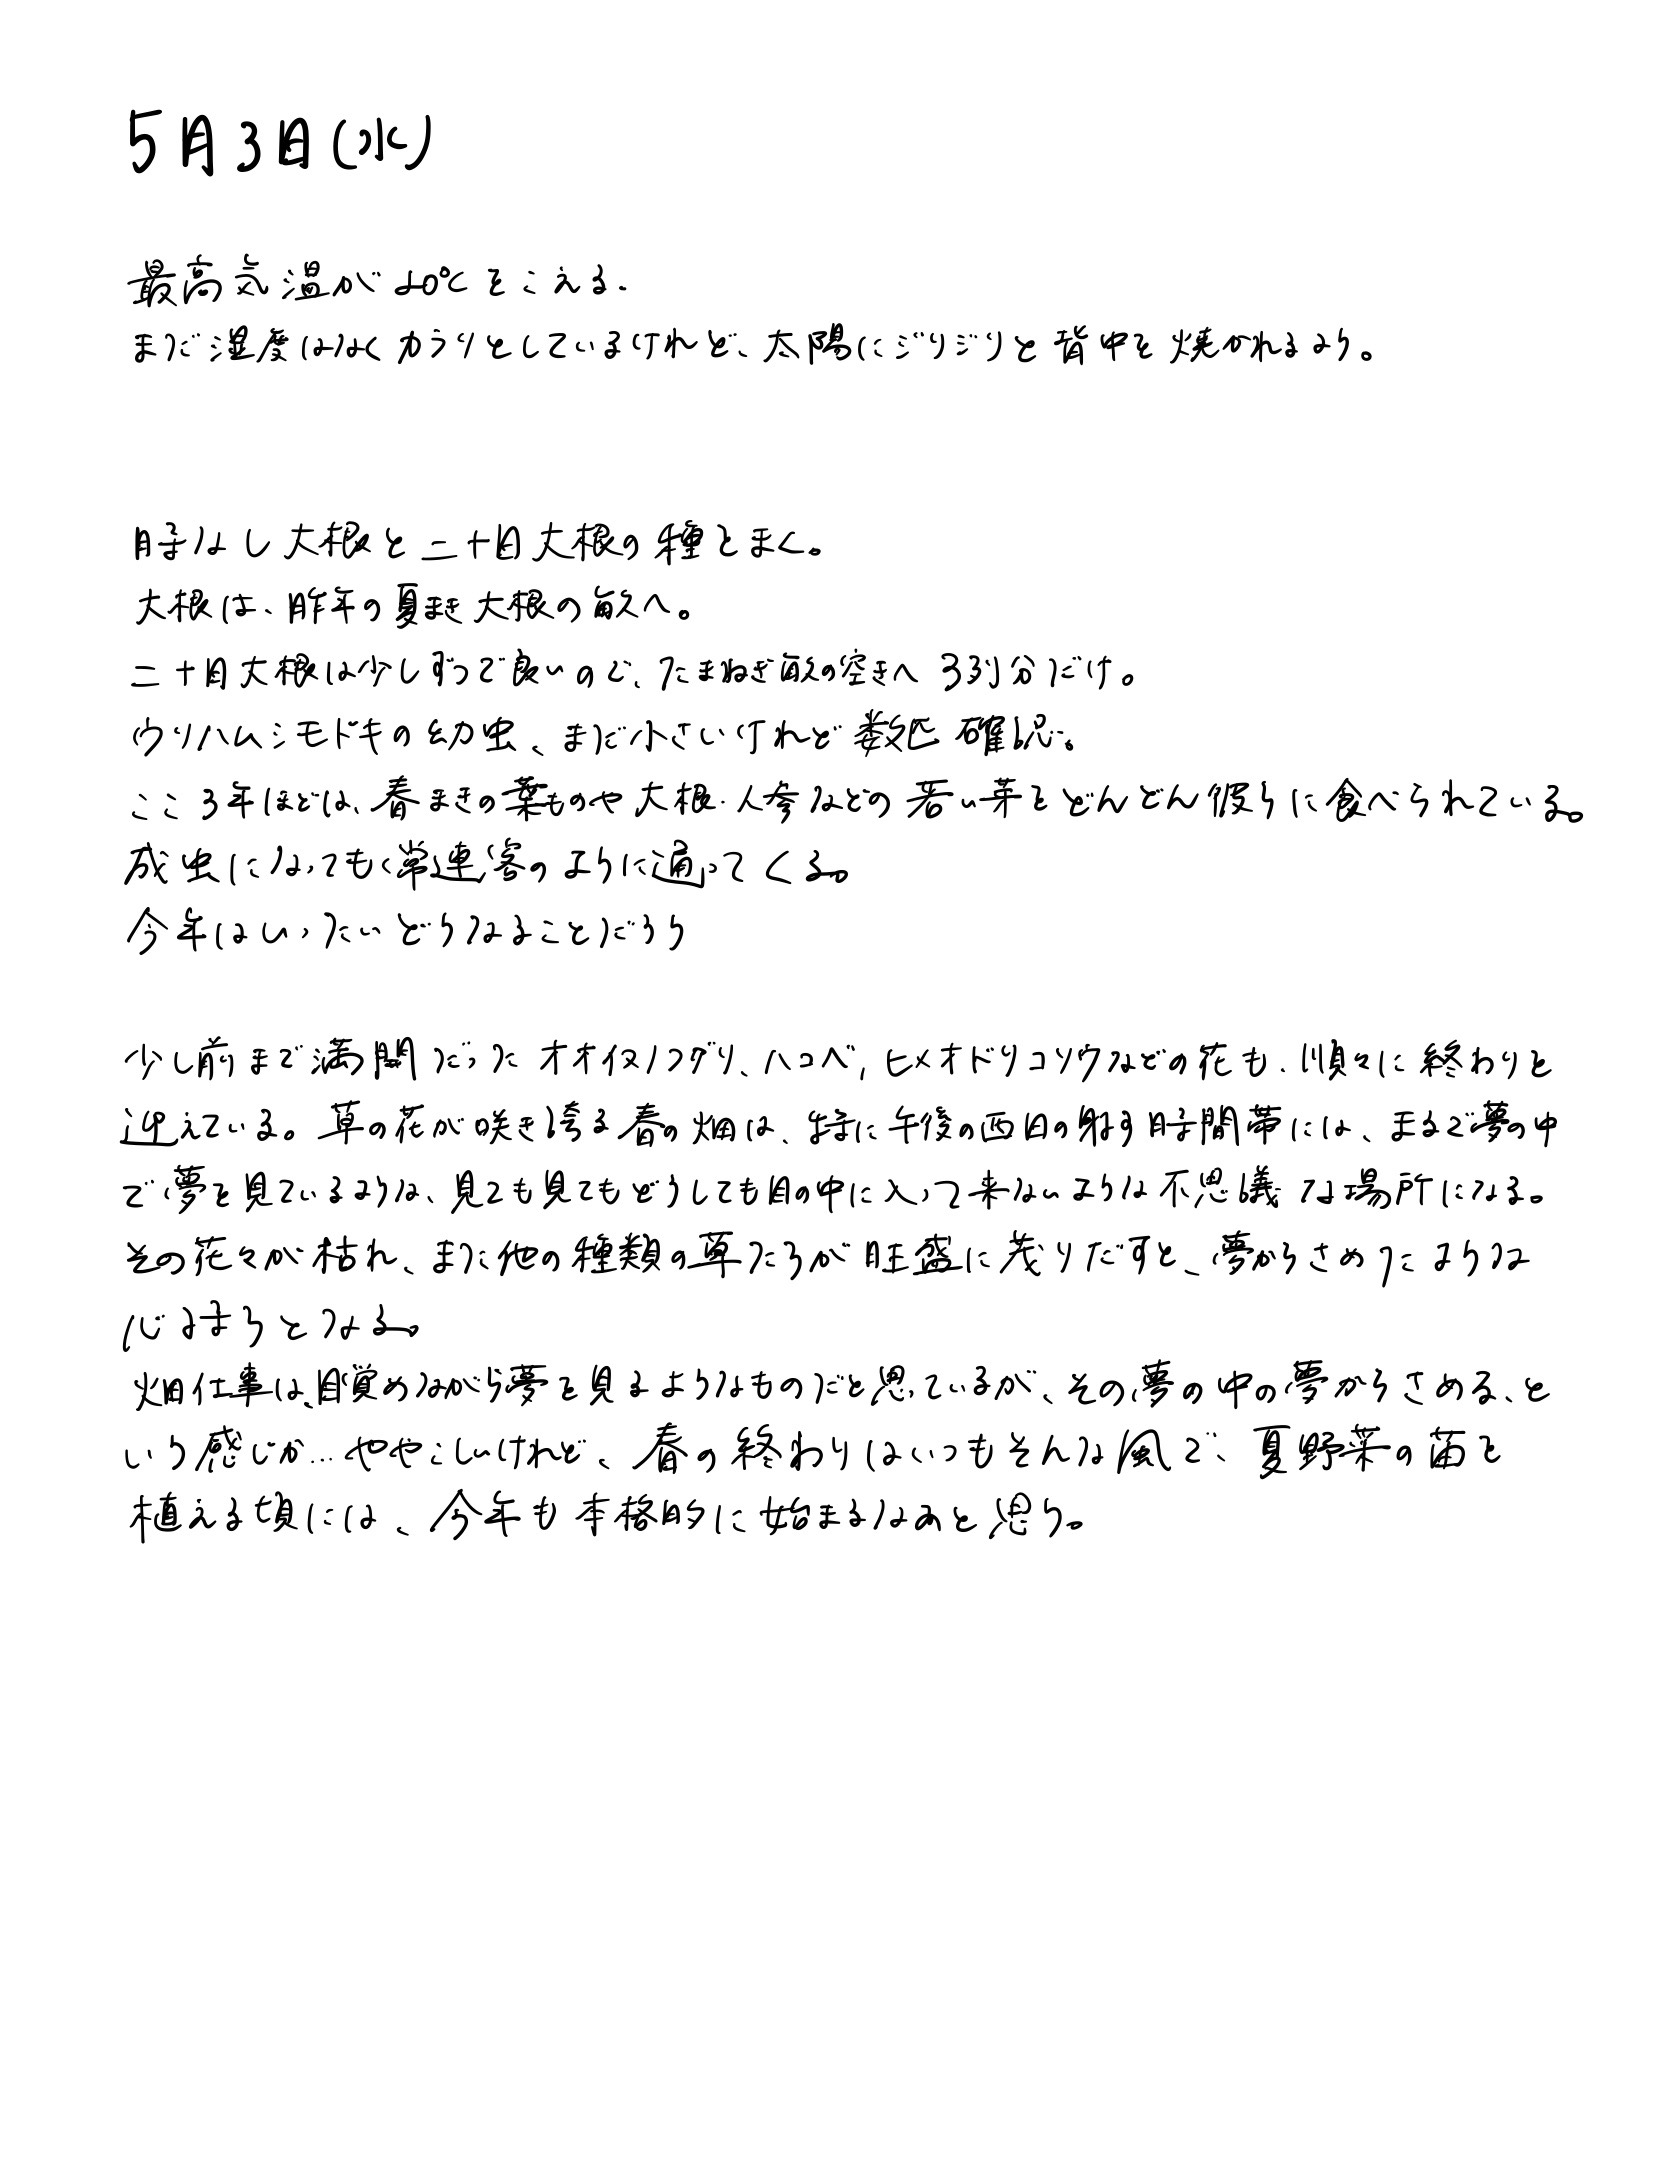 5月3日(水)
最高気温が20℃をこえる.
まだ湿度はなくカラリとしているけれど、太陽にジリジリと背中を焼かれるよう。
時なし大根と二十日大根の種をまく。
大根は、昨年の夏まき大根の畝へ。
二十日大根は少しずつで良いので、たまねぎ畝の空きへ3列分だけ。
ウリハムシモドキの幼虫、まだ小さいけれど数匹確認。
ここ3年ほどは、春まきの葉ものや大根・人参などの若い芽をどんどん彼らに食べられている。
成虫になっても常連客のように通ってくる。
今年はいったいどうなることだろう
少し前まで満開だったオオイヌノフグリ、ハコベ、ヒメオドリコソウなどの花も、順々に終わりを
迎えている。草の花が咲き誇る春の畑は、特に午後の西日の射す時間帯には、まるで夢の中
で夢を見ているような、見ても見てもどうしても目の中に入って来ないような不思議な場所になる。
その花々が枯れ、また他の種類の草たちが旺盛に茂りだすと、夢からさめたような
心持ちとなる。
畑仕事は、目覚めながら夢を見るようなものだと思っているが、その夢の中の夢からさめる、と
いう感じか…ややこしいけれど、春の終わりはいつもそんな風で、夏野菜の苗を
植える頃には、今年も本格的に始まるなぁと思う。